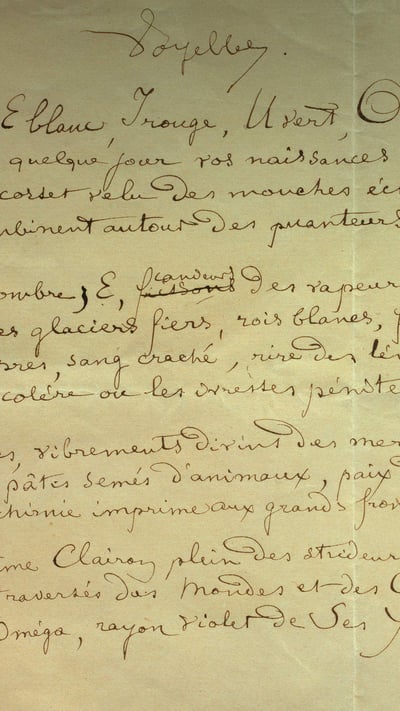 Voyelles.
E blanc, I rouge, U vert, O
quelque jour vos naissances
corset velu des mouches écl
mbinent autour des puanteurs
ombre; E, frissons candeurs des vapeur
es glaciers fiers, rois blancs, f
pres, sang craché, rire des lèv
colère ou les ivresses pénite
s, vibrements divins des mer
pâtis semés d'animaux, paix
chimie imprime aux grands fron
ême Clairon plein des strideur
traversés des Mondes et des
Oméga, rayon violet de Ses Y